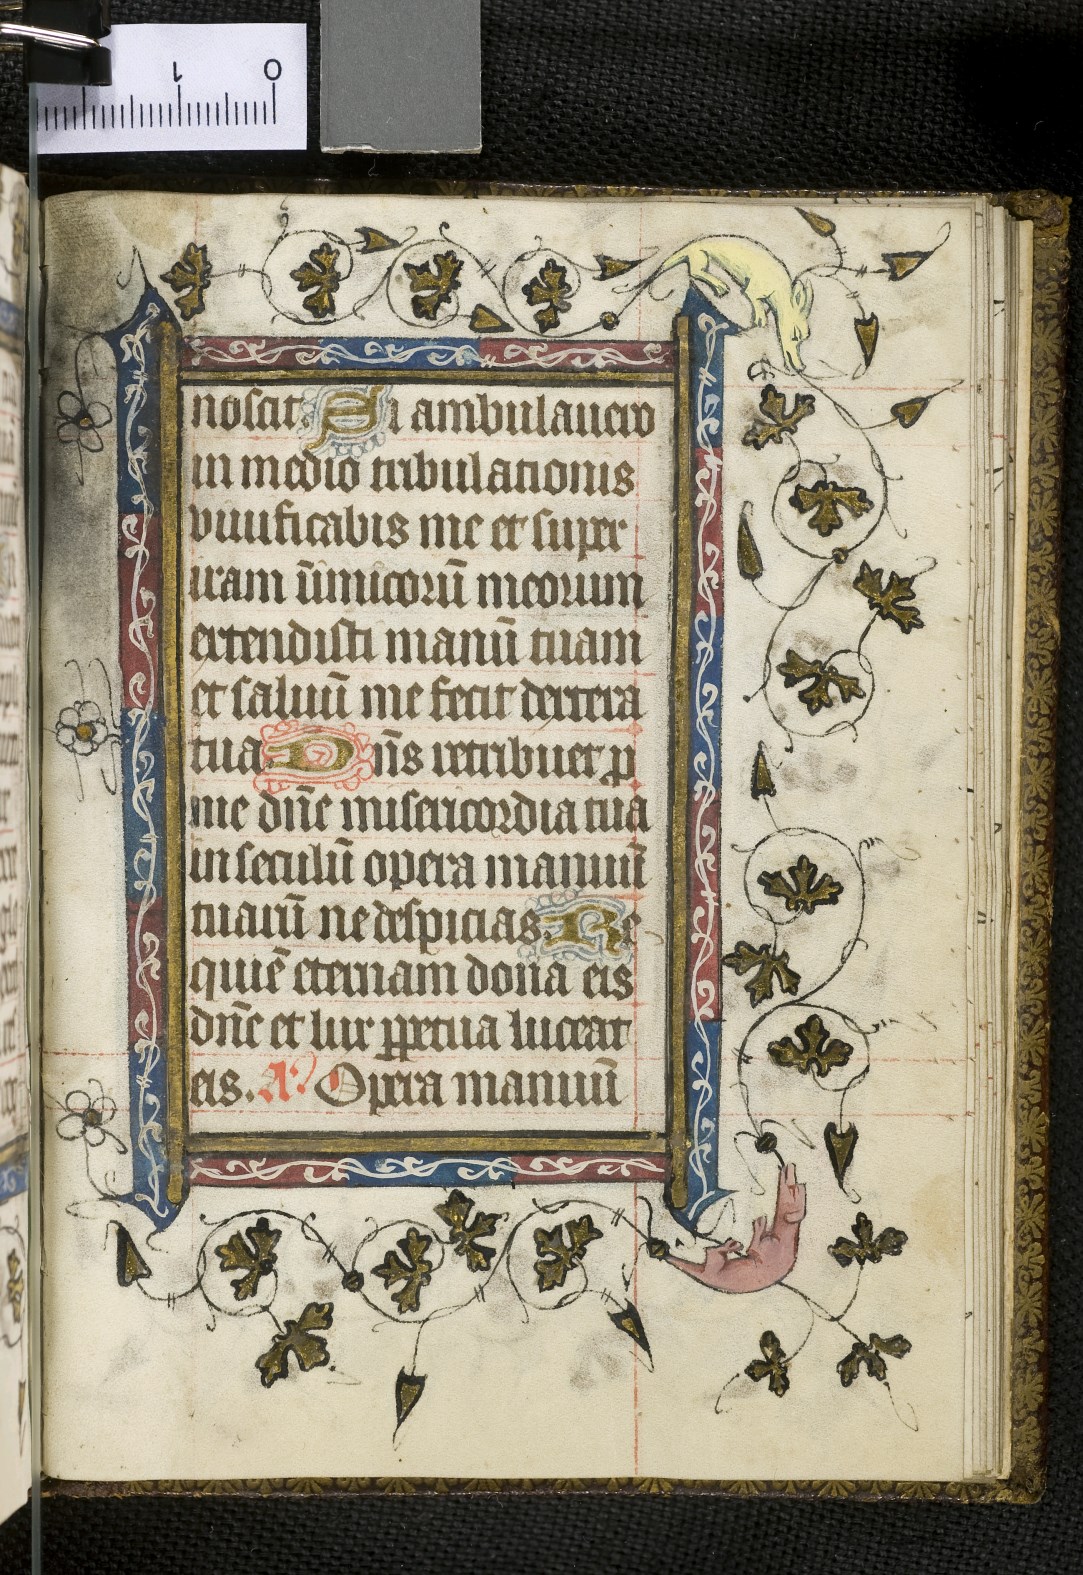 1 0
noscit. Si ambulauero
in medio tribulationis
viuificabis me et super
iram inimicorū meorum
extendisti manū tuam
et saluū me fecit dextera
tua Dn̄s retribuet p
me dn̄e misericordia tua
in seculū opera manuū
tuarū ne despicias. Re
quiē eternam dona eis
dn̄e et lux ꝑpetua luceat
eis. A⁊ Opera manuū